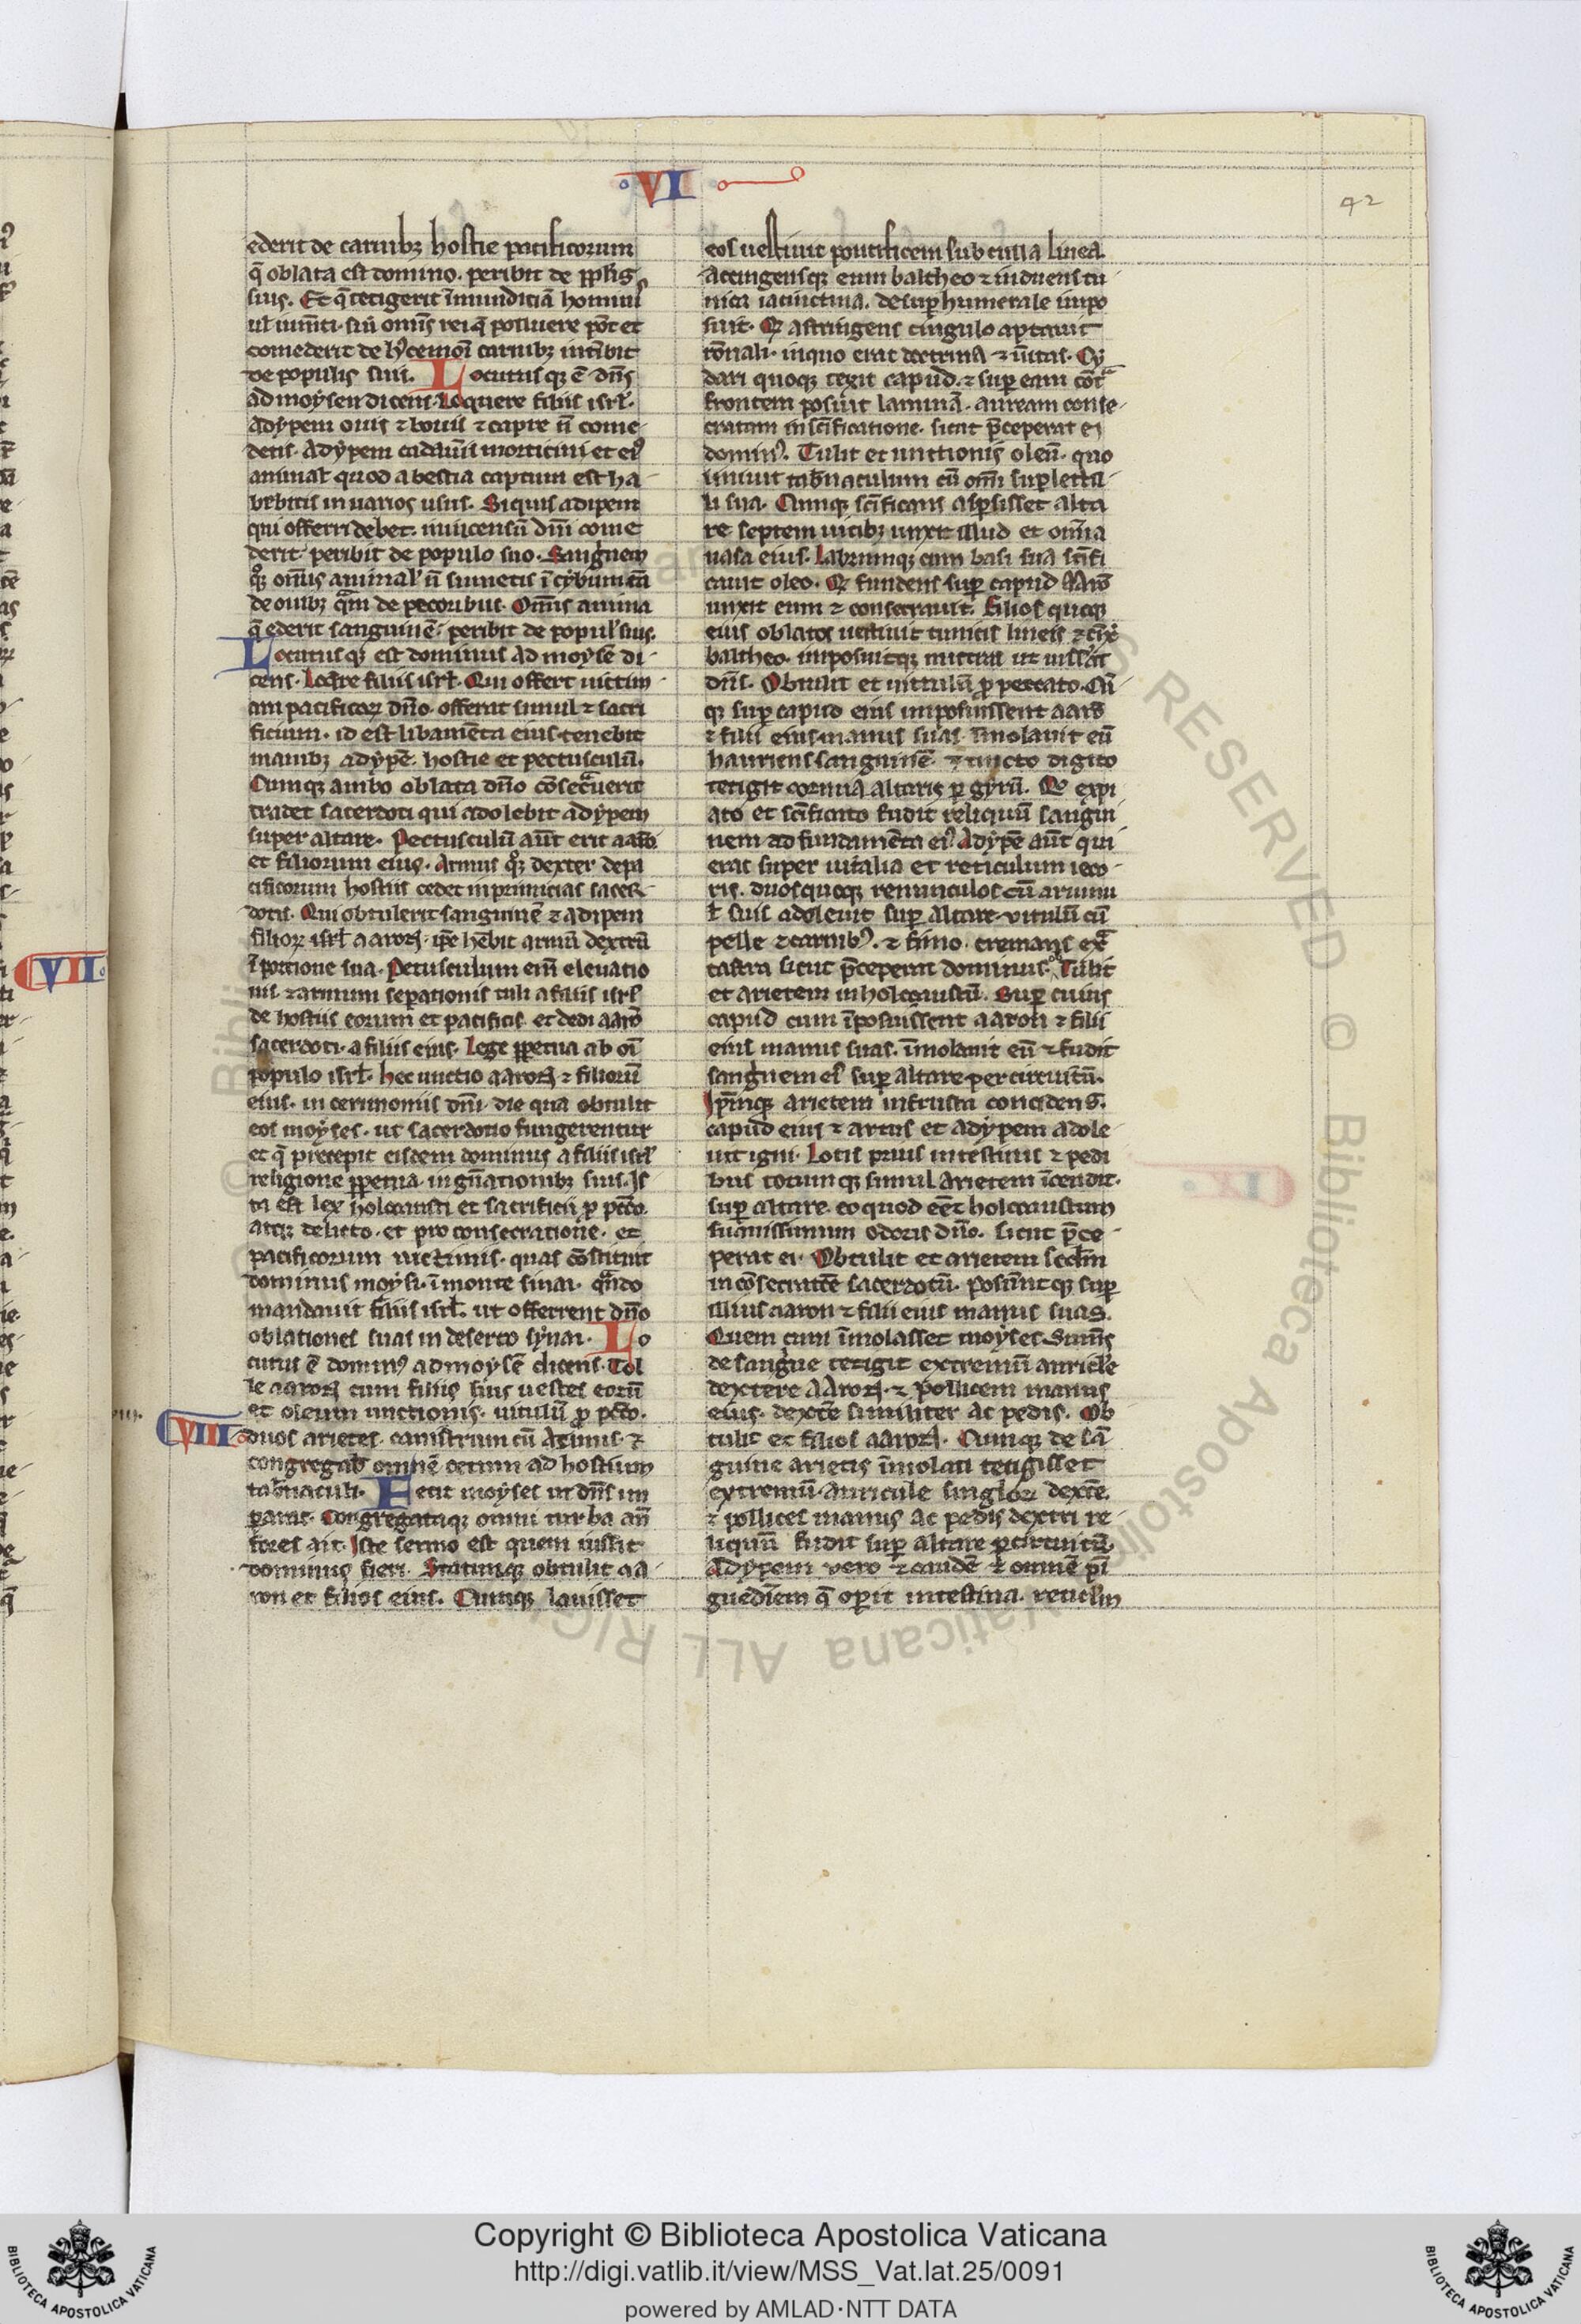 VI
42
ederit de carnibꝫ hostie pacificorum
q̄ oblata est domino. peribit de pplis
suis. Et q̄ tetigerit īmundiciā hominis
ul̓ iumti. siū omīs rei q̄ polluere pōt et
comederit de hꝰcemōi carnibꝫ intībit
de populis suis. Locutusqꝫ ē dn̄s
ad moysen dicens. Loquere filiis isrl̓.
Adypem ouis ⁊ bouis ⁊ capre n̄ come
detis. Adypem cadaū̓is morticini et eiꝰ
animal̓ quod a bestia captum est ha
bebitis in uarios usus. Siquis adipem
qui offerri debet. in incensū dn̄i come
derit peribit de populo suo. Sangͥnem
qͦꝫ om̄is animal̓ n̄ sumetis ī cybum tā
de auibꝫ qͣm de pecoribus. Omīs anima
q̄ ederit sanguinē. peribit de popul̓ suis.
Locutusqꝫ est dominus ad moysē di
cens. Loq̄re filiis isrl̓. Qui offert uictim
am pacificoꝝ dn̄o. offerat simul ⁊ sacri
ficium. id est libamēta eius. tenebit
manibꝫ adypē. hostie et pectusculū.
Cumqꝫ ambo oblata dn̄o cōsecͣuerit
tradet sacerdoti qui adolebit adypem
super altare. Pectusculū aūt erit aarō
et filiorum eius. Armus qͦꝫ dexter de pa
cificorum hostiis cedet in primicias sacer
dotis. Qui obtulerit sanguinē ⁊ adipem
filioꝝ isrl̓ aaron. ip̄e hēbit armū dextrū
ī portione sua. Petusculum em̄ eleuatio
nis. ⁊ armum sepationis tuli a filiis isrl̓
de hostiis eorum et pacificis. et dedi aarō
sacerdoti. a filiis eius. Lege ppetua ab oī
populo isrl̓. hec unctio aaron ⁊ filiorū
eius. in cerimoniis dn̄i. die qua obtulit
eos moyses. ut sacerdotio fungerentur
et q̄ precepit eisdem dominus a filiis isrl̓
religione ppetua. in gn̄ationibꝫ suis. Is
ta est lex holocausti et sacrificii p pctō.
atqꝫ delicto. et pro consecratione. et
pacificorum uictimis. quas cōstituit
dominus moysi. ī monte sinai. qn̄do
mandauit filiis isrl̓. ut offerrent dn̄o
oblationes suas in deserto synai. Lo
VII
cutus ē dominꝰ ad moysē dicens. Tol
le aaron cum filiis suis uestes eorū
et oleum unctionis. uitulū p pctō.
VIII
duos arietes. canistrum cū aȝimis. ⁊
congregab̓ omnē cetum ad hostium
tab̓naculi. Fecit moyses ut dn̄s im
parat̓. Congregataqꝫ omni turba an̄
fores ait. Iste sermo est quem iussit
dominus fieri. Statimqꝫ obtulit aa
ron et filios eius. Cumqꝫ lauisset
eos uestiuit pontificem subcuna linea.
Accingensqꝫ eum baltheo ⁊ induens tu
nica iacinctina. desup humerale impo
suit. Qͩ astringens cingulo aptauit
rōnali. in quo erat doctrina ⁊ ūitas. Cy
dari quoqꝫ texit capud. ⁊ sup eam cōtͣ
frontem posuit laminā. auream conse
cratam in sc̄ificatione. sicut p̄ceperat ei
dominꝰ. Tulit et unctionis oleū. quo
liniuit tab̓naculum cū om̄i suplecti
li sua. Cumqꝫ sc̄ificans aspsisset alta
re septem uicibꝫ unxit illud et om̄ia
uasa eius. Labrumqꝫ cum basi sua sc̄ifi
cauit oleo. Qͩ fundens sup capud Aarō
unxit eum ⁊ consecrauit. Filios quoqꝫ
eius oblatos uestiuit tunicis lineis ⁊ cīx̓
baltheo. imposuitqꝫ mitras ut iuss̓at
dn̄s. Obtulit et uitulū p peccato. Cū
qꝫ sup capud eius imposuissent aarō
⁊ filii eius manus suas. imolauit eū
hauriens sanguinē. ⁊ tincto digito
tetigit cornua altaris p gyrū. Qͦ expi
ato et sc̄ificato fudit reliquū sangui
nem ad fundamēta eiꝰ. Adypē aūt qui
erat super uitalia et reticulum ieco
ris. duosquoqꝫ renunculos cū aruinu
l̓ suis adoleuit sup altare. vitulū cū
pelle ⁊ carnibꝰ. ⁊ fimo. cremans exͣ
castra sicut p̄ceperat dominus. Tulit
et arietem in holocaustū. Sup cuius
capud cum īposuissent aaron ⁊ filii
eius manus suas. īmolauit eū ⁊ fudit
sangͥnem eiꝰ sup altare per circuitū.
Ipm̄qꝫ arietem in frusta concidens.
capud eius ⁊ artus et adypem adole
uit igni. Lotis prius intestinis ⁊ pedi
bus totumqꝫ simul arietem īcendit.
sup altare. eo quod eēt holocaustum
suauissimum odoris dn̄o. sicut p̄ce
perat ei. Obtulit et arietem secd̄m
in cōsecratōe sacerdotū. posueruntqꝫ sup
illius aaron ⁊ filii eius manus suas.
Quem cum īmolasset moyses. Sumēs
de sangͥne tetigit extremū auricl̓e
dextere Aaron. ⁊ pollicem manus
eius. dextē similiter ac pedis. Ob
tulit et filios aaron. Cumqꝫ de sā
guine arietis īmolati tetigisset
extremū auricule singl̓oꝝ dextē.
⁊ pollices manus ac pedis dextri re
liquū fudit sup altare p circuitū.
Adypem vero ⁊ caudē ⁊ omnē pī
guedīem q̄ opit intestina. reticl̓m
Copyright © Biblioteca Apostolica Vaticana
http://digi.vatlib.it/view/MSS_Vat.lat.25/0091
powered by AMLAD·NTT DATA
BIBLIOTECA APOSTOLICA VATICANA
BIBLIOTECA APOSTOLICA VATICANA